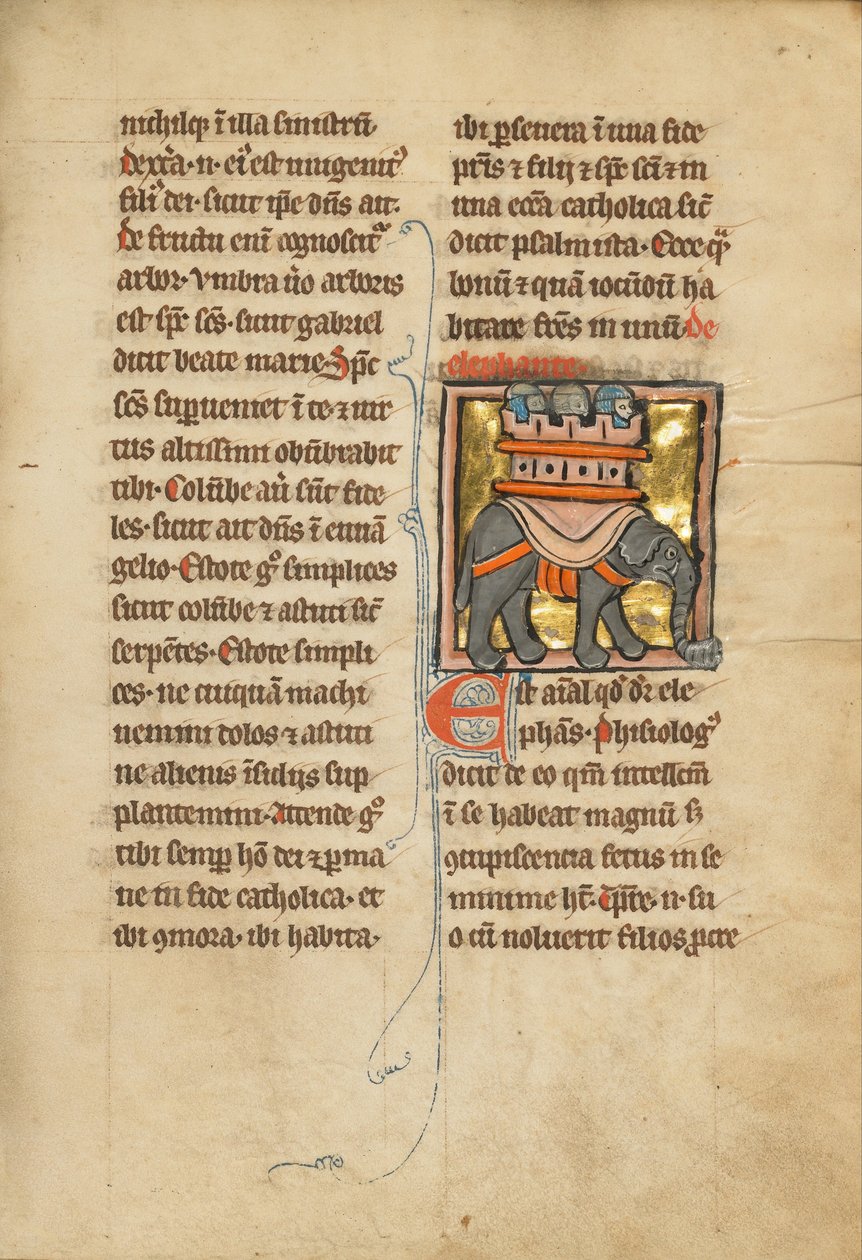 nichilq; ī illa sinistrū.
dext̄a. n. ei᷒ est unigenit᷒
fili᷒ dei. sicut ip̄e dn̄s ait.
De fructu eni᷒ cognoscit᷑
arbor. Vmbra u̾o arboris
est sp̄c sc̄s. sicut gabriel
dicit beate marie. Sp̄c
sc̄s sup̱ueniet ī te. ⁊ uir
tus altissimi obūbrabit
tibi. Colūbe au̾ sūt fide
les. sicut ait dn̄s ī euuā
gelio. Estote g̊ simplices
sicut colūbe ⁊ astuti sic̄
serpētes. Estote simpli
ces. ne cuiquā machi
nemini dolos ⁊ astuti
ne alienis īsidijs sup
plantemini. Attende g̊
tibi semp̱ hō dei ⁊ p̱ma
ne in fide catholica. et
ibi ꝯmora. ibi habita.
ibi p̱seuera ī una fide
pr̄is ⁊ filij ⁊ sp̄c sc̄i ⁊ in
una ecc̄a catholica sic̄
dicit psalmista. Ecce q̄
bonū ⁊ quā iocūdū ha
bitare fr̄es in unū. De
elephante.
Est aīal qd̄ dr̄ ele
phās. Phisiolog᷒
dicit de eo qm̄ intellc̄m
ī se habeat magnū s₃
ꝯcupiscencia fetus in se
minime ht̄. Tp̄re. n. su
o cū noluerit filios ꝓcre